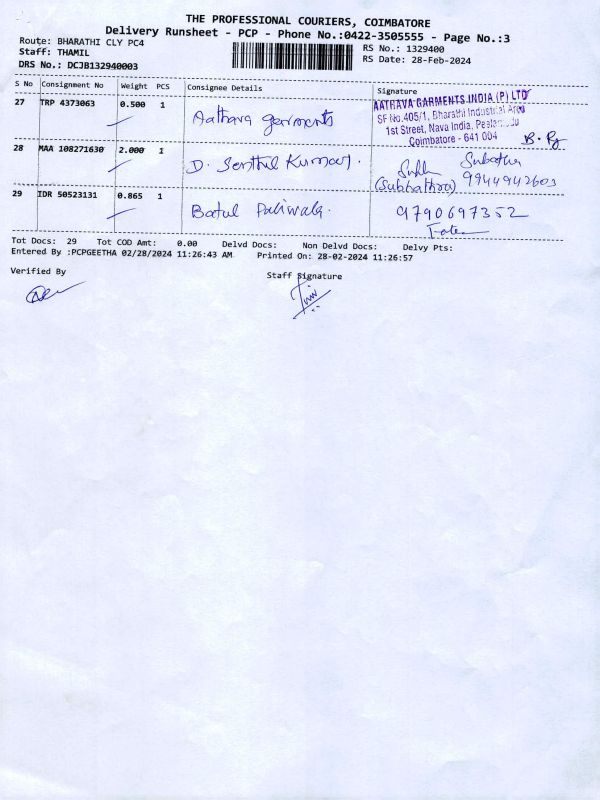 THE PROFESSIONAL COURIERS, COIMBATORE
Delivery Runsheet - PCP - Phone No.:0422-3505555 - Page No.:3
Route: BHARATHI CLY PC4
Staff: THAMIL
DRS No.: DCJB132940003
RS No.: 1329400
RS Date: 28-Feb-2024
S No Consignment No Weight PCS Consignee Details Signature
27 TRP 4373063 0.500 1 Aathava garments
AATRAVA GARMENTS INDIA (P) LTD
SF No.405/1, Bharathi Industrial Area
1st Street, Nava India, Peelamedu
Coimbatore - 641 004
28 MAA 108271630 2.000 1 D. Senthil Kumar.
(Subhathra) 9944942603
29 IDR 50523131 0.865 1 Batul Paliwala.
9790697352
Tot Docs: 29 Tot COD Amt: 0.00 Delvd Docs: Non Delvd Docs: Delvy Pts:
Entered By :PCPGEETHA 02/28/2024 11:26:43 AM Printed On: 28-02-2024 11:26:57
Verified By Staff Signature